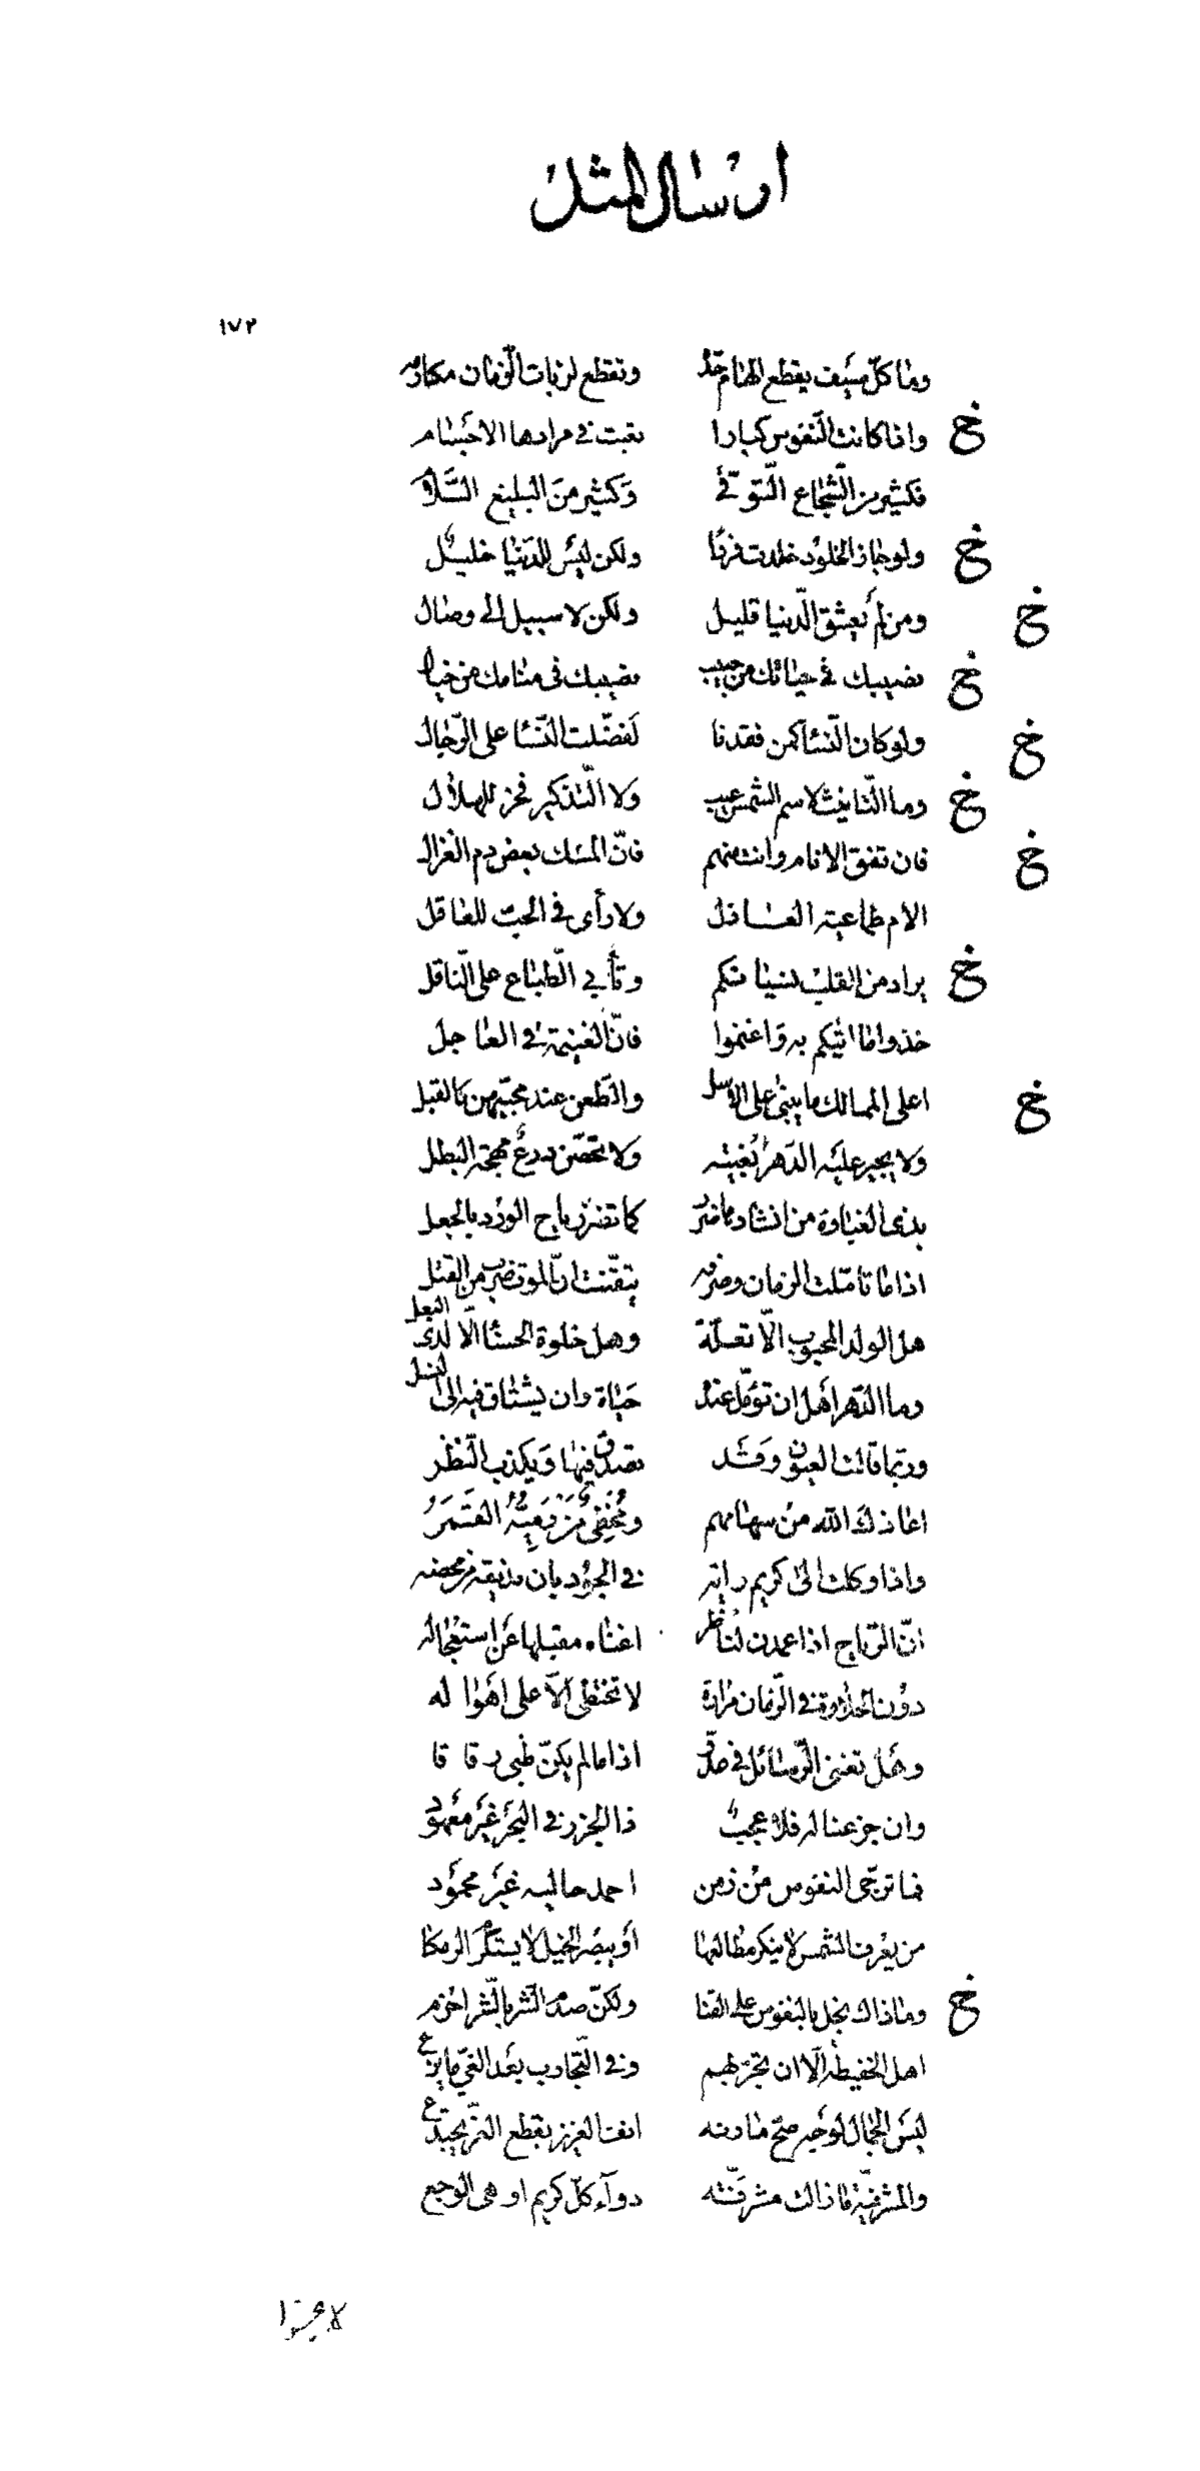 ارسال المثل
١٧٢
وما كلّ سيف يقطع الهام حدّه وتقطع لزبات الزّمان مكارمه
خ واذا كانت النّفوس كبارا تعبت في مرادها الاجسام
فكثير من الشّجاع التّوقّي وكثير من البليغ السّلام
خ ولو جاز الخلود خلدت فردا ولكن ليس للدّنيا خليل
خ ومن لم يعشق الدّنيا قليل ولكن لا سبيل الى وصال
خ نصيبك في حياتك من حبيب نصيبك في منامك من خيال
خ ولو كان النّسآ كمن فقدنا لفضّلت النّسا على الرّجال
خ وما التّانيث لاسم الشّمس عيب ولا التّذكير فخر للهلال
خ فان تفق الانام وانت منهم فانّ المسك بعض دم الغزال
الام طماعية العاذل ولا رأى في الحبّ للعاقل
خ يراد من القلب نسيانكم وتأبي الطّباع على النّاقل
خذوا ما اتيكم به واغنموا فانّ الغنيمة في العاجل
خ اعلى الممالك ما يبنى على الاسل والطّعن عند محبّيهن كالقبل
ولا يجير عليه الدّهر بغيته ولا تحصّن درع مهجة البطل
بذى الغباوة من انشادها ضرر كما تضرّ رياح الورد بالجعل
اذا ما تامّلت الزمان وصرفه تيقّنت انّ الموت ضرب من القتل
هل الولد المحبوب الّا تعلّة وهل خلوة الحسنا الّا اذى البعل
وما الدّهر اهل ان تؤمّل عنده حياة وان يشتاق فيه الى النسل
وربّما قالت العيون وقد تصدق فيها ويكذب النّظر
اعاذك الله من سهامهم ومخطئ من رميّه القمر
واذا وكلت الى كريم رايه في الجود بان مذيقه من محضه
انّ الرّياح اذا عمدن لناظر اغناه مقبلها عن استعجاله
دون الحلاوة في الزّمان مرارة لا تختطى الّا على اهواله
وهل تغنى الرّسائل في عدوّ اذا ما لم يكنّ ظبى رقاقا
وان جزعنا له فلا عجب ذا الجزر في البحر غير معهود
فما ترجّى النفوس من زمن احمد حاليه غير محمود
من يعرف الشّمس لا ينكر مطالعها او يبصر الخيل لا يستكرم الرمكا
خ وما ذاك بخل بالنفوس على القنا ولكنّ صدم الشّر بالشّر احزم
اهل الحفيظة الّا ان تجرّبهم وفي التّجارب بعد الغيّ ما يزع
ليس الجمال لوجه صحّ مارنه انف العزيز بقطع العزّ يجتدع
والمشرفيّة ما زالت مشرفّته دوآء كلّ كريم او هى الوجع